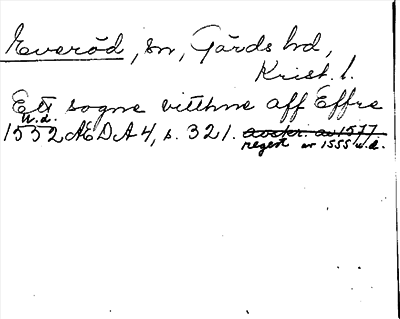 Everöd, sn, Gärds hd,
Krist. l.
Ett sogne vitthne aff Effre
u.d.
1552 ÆDA 4, s. 321. avskr. av 1577
regest av 1555 u.d.